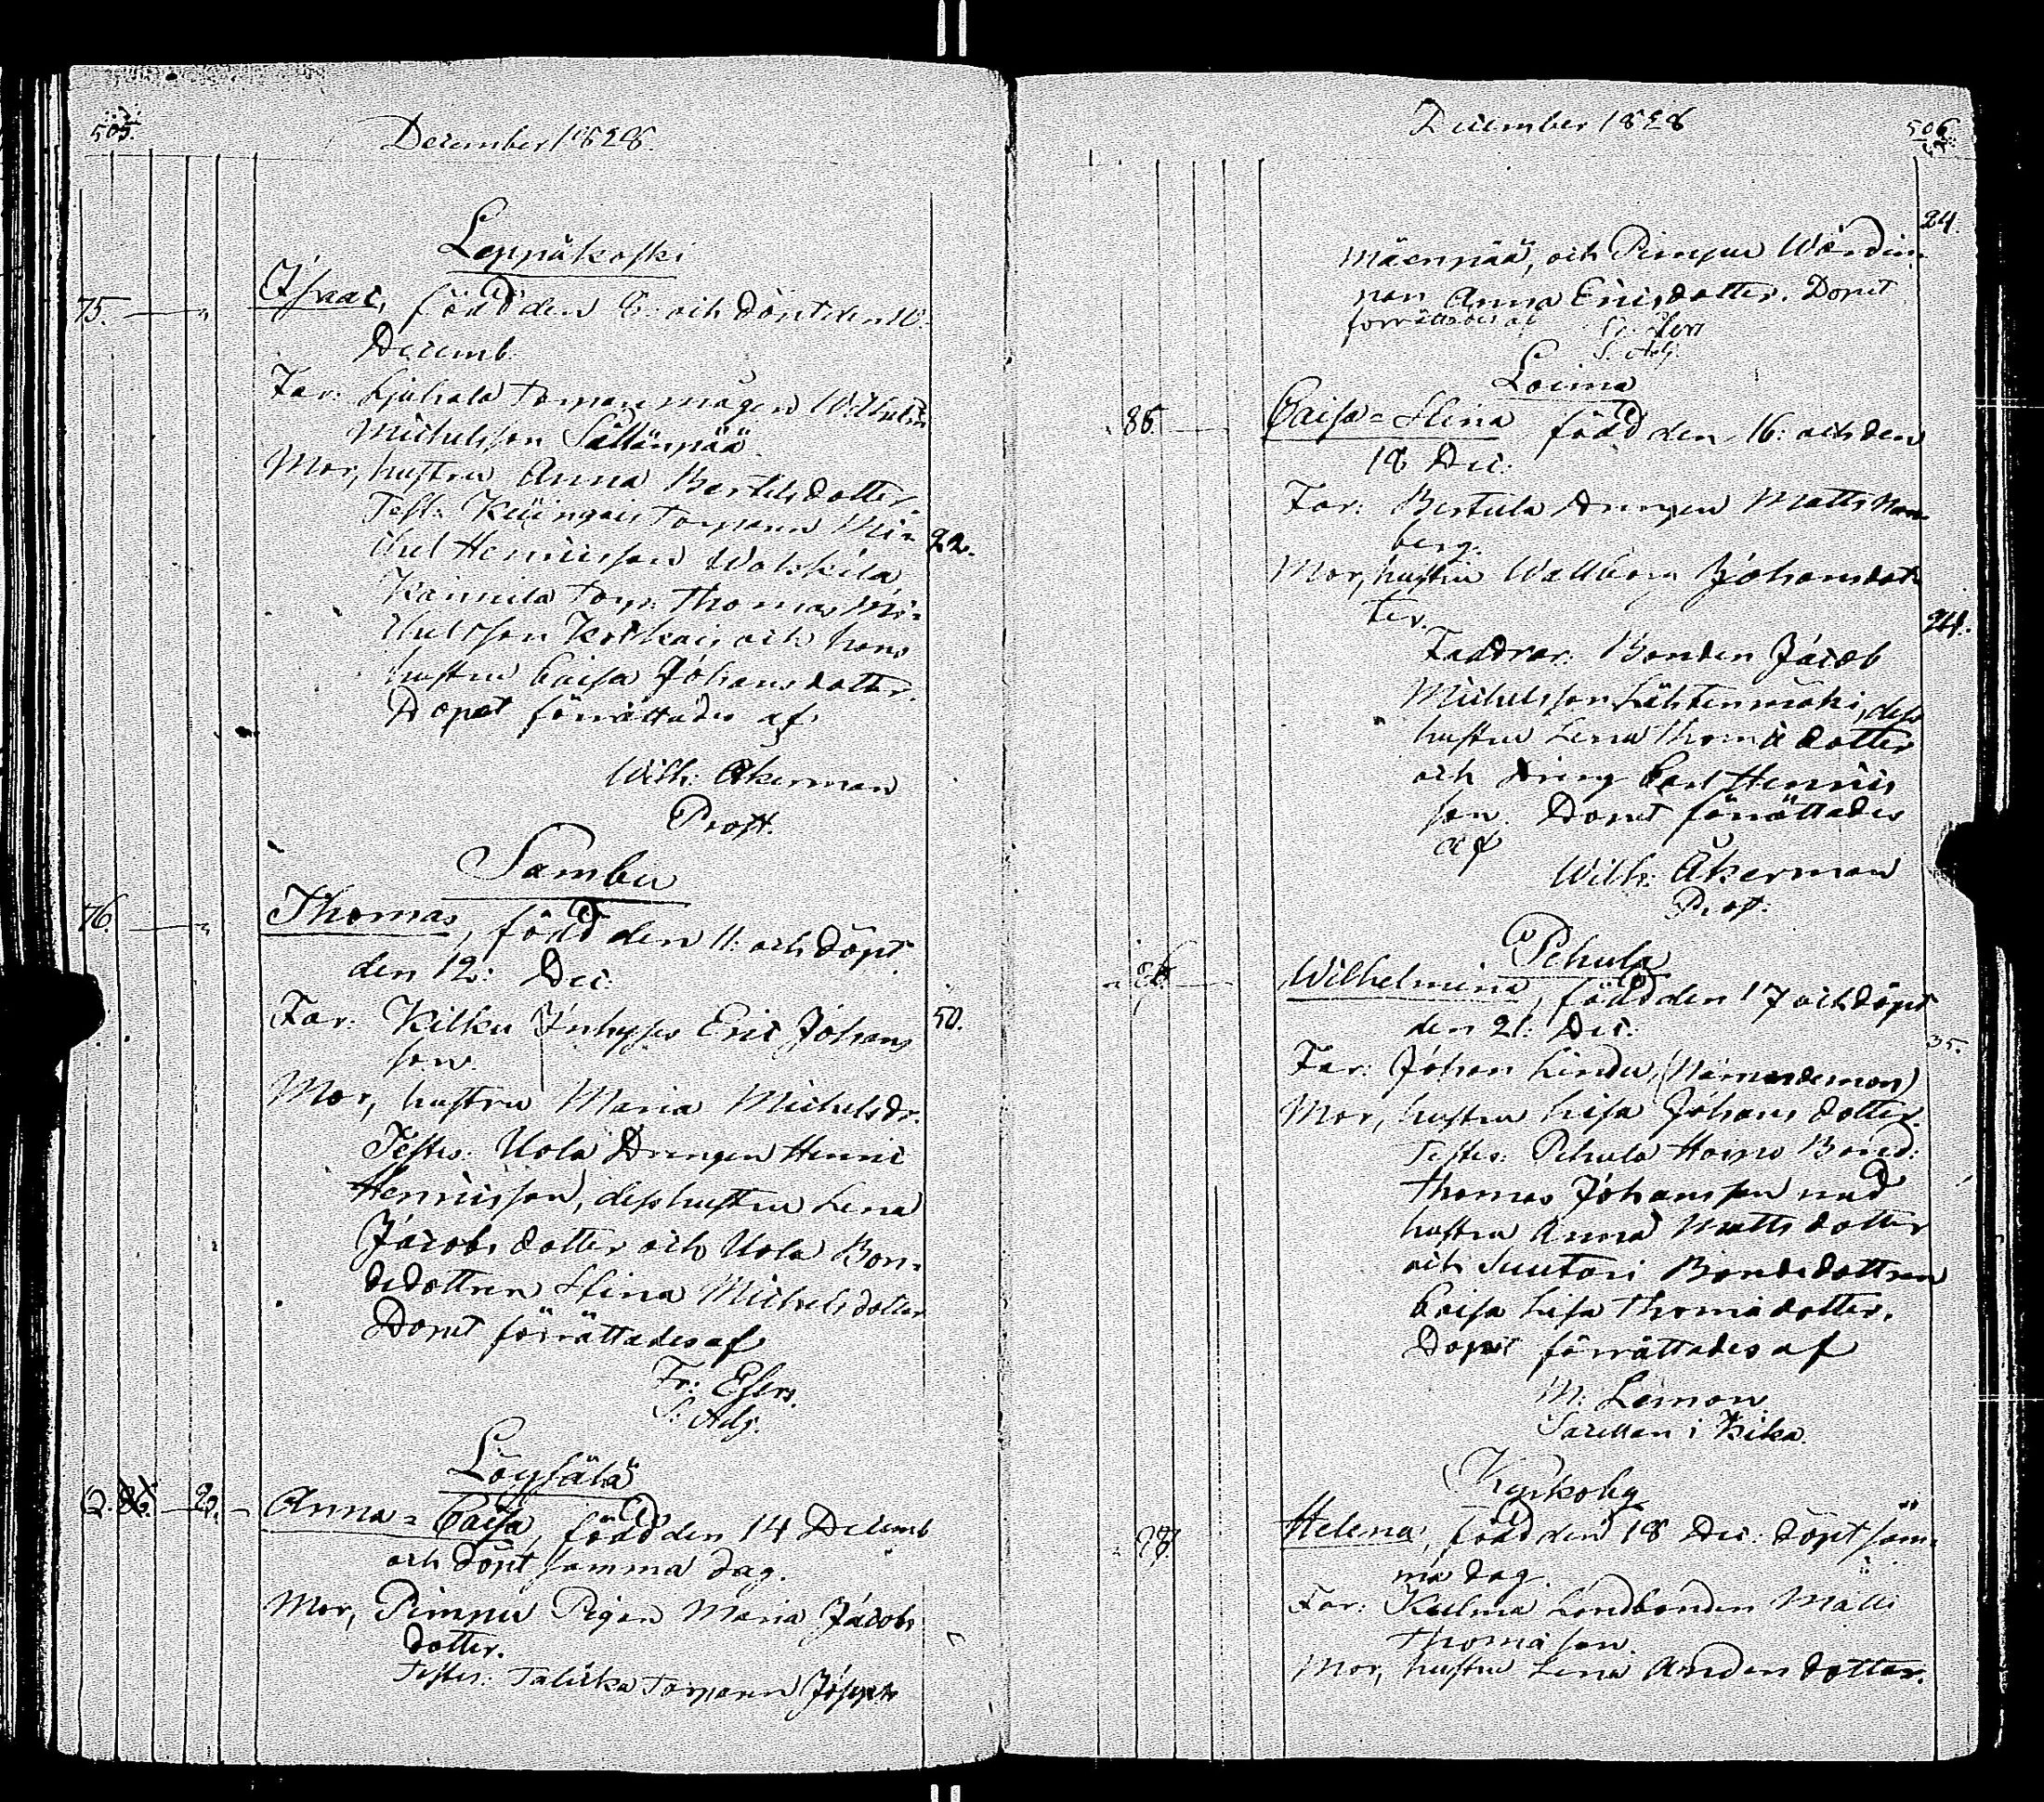 505.
December 1828.
Leppäkoski
75. Isaac, född den 8: och döpt den 10.
Decemb.
Far: Torparemågen Wilhelm
Michelsson Sällänpää
Mor, hustru Anna Bertilsdotter.
Test: Torparen Mi= 22.
chel Henricsson
Torp: Thomas Mi=
chelsson och hans
hustru Caisa Johansdotter.
Dopet förrättades af
Wilh: Åkerman
Prost.
Sambu
76. Thomas, född den 11: och döpt
den 12: Dec:
Far: Kilku Inhyses Eric Johans 50.
son.
Mor, hustru Maria Michelsdr.
Testes: Uola Drengen Henric
Henricsson, dess hustru Lena
Jacobsdotter och Uola Bon=
dedottren Stina Michelsdotter
Dopet förrättades af
Fr: Efsrn.
S: Adj.
Löysälä
2. 2. Anna=Caisa, född den 14 Decemb
och döpt samma dag.
Mor, Pimpu Pigan Maria Jacobs
dotter.
Testes: Torparen Joseph
December 1828
506.
24.
Mäenpää, och Pimpu Wärdin=
nan Anna Ericsdotter. Dopet
förrättades af
S: Adj.
Loima
86. Caisa=Stina född den 16: och den
18 Dec:
Far: Bertula Drengen Matts
berg.
Mor, hustru Wallborg Johansdot=
ter. 24.
Faddrar: Bonden Jacob
Michelsson Lähtenmäki, dess
hustru Lena Thomædotter
och Dreng Carl Henrics
son. Dopet förrättades
af
Wilh: Åkerman
Prost.
Pehula
Wilhelmina, född den 17 och döpt
den 21: Dec: 35.
Far: Johan Lindu, (Nämndeman)
Mor, hustru Lisa Johansdotter.
Testes: Pehula Bond:
Thomas Johansson med
hustru Anna Mattsdotter
och Suutari Bondedottren
Caisa Lisa Thomædotter.
Dopet förrättades af
M: Lemon
Sacellan i Kika.
Kyrkoby
Helena, född den 18 Dec: döpt sam=
ma dag.
Far: Kulma Landbonden Matts
Thomasson
Mor, hustru Lena Andersdotter.